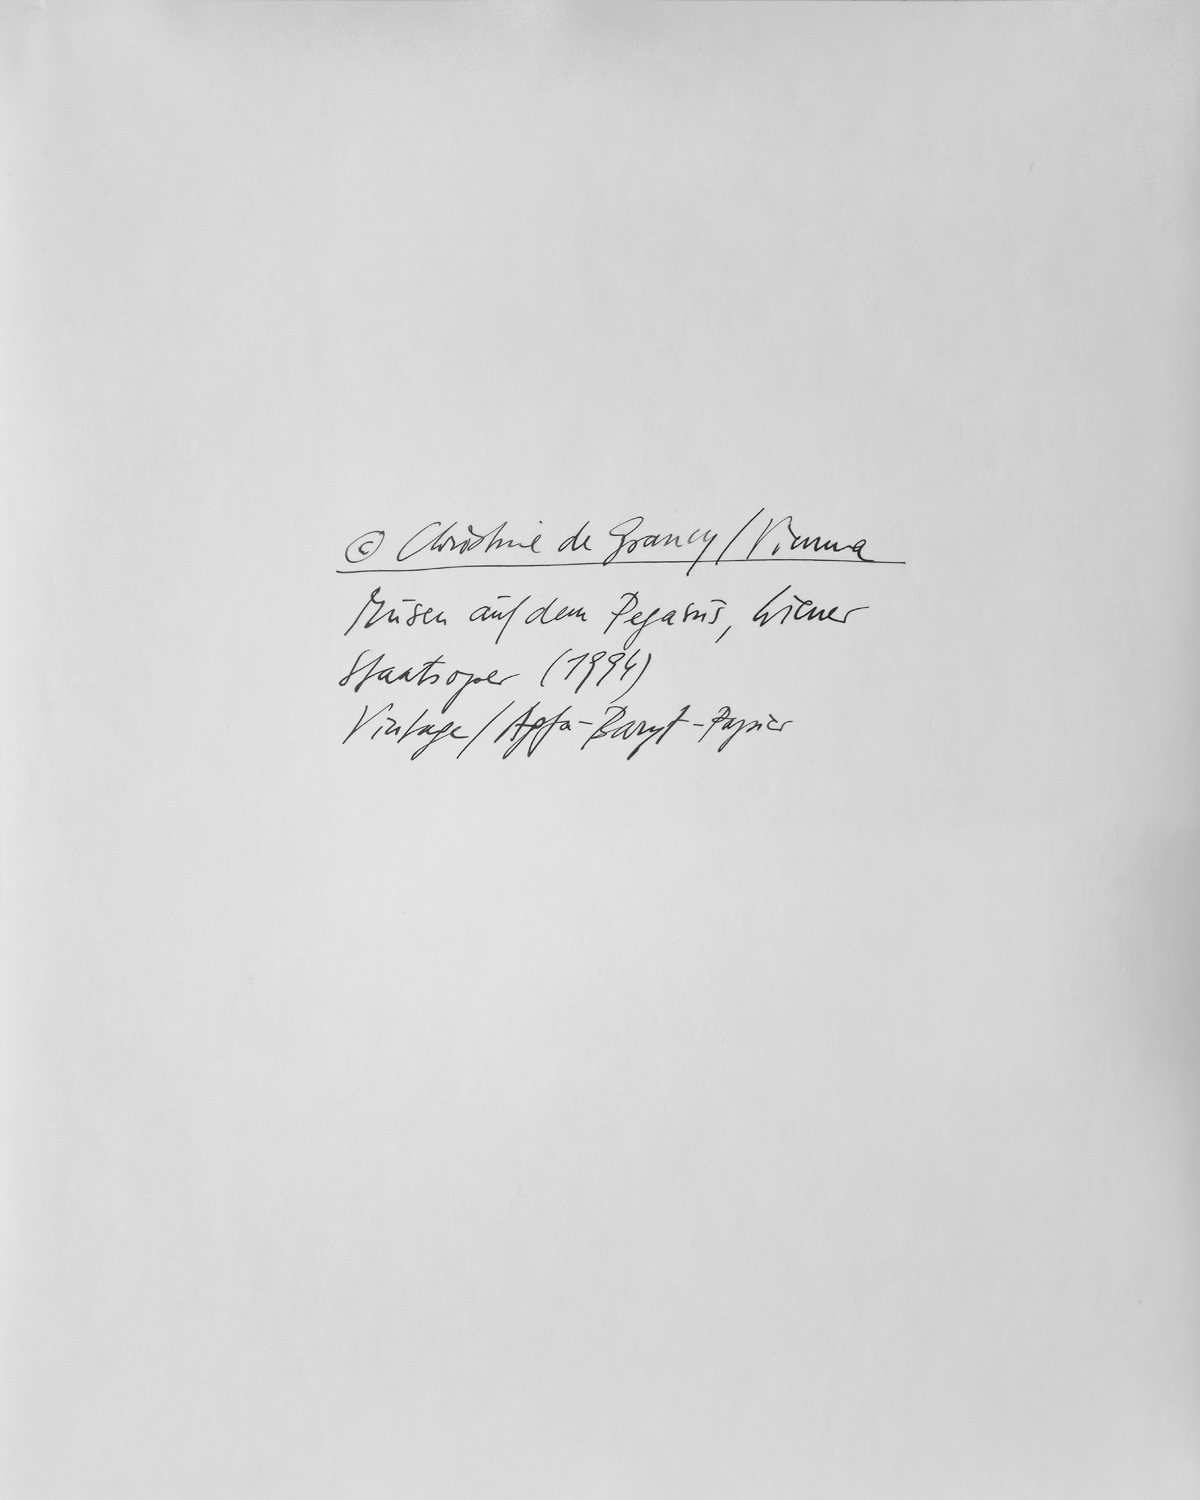 © Christine de Grancy / Vienna
Musen auf dem Pegasus, Wiener
Staatsoper (1994)
Vintage / Agfa-Baryt-Papier